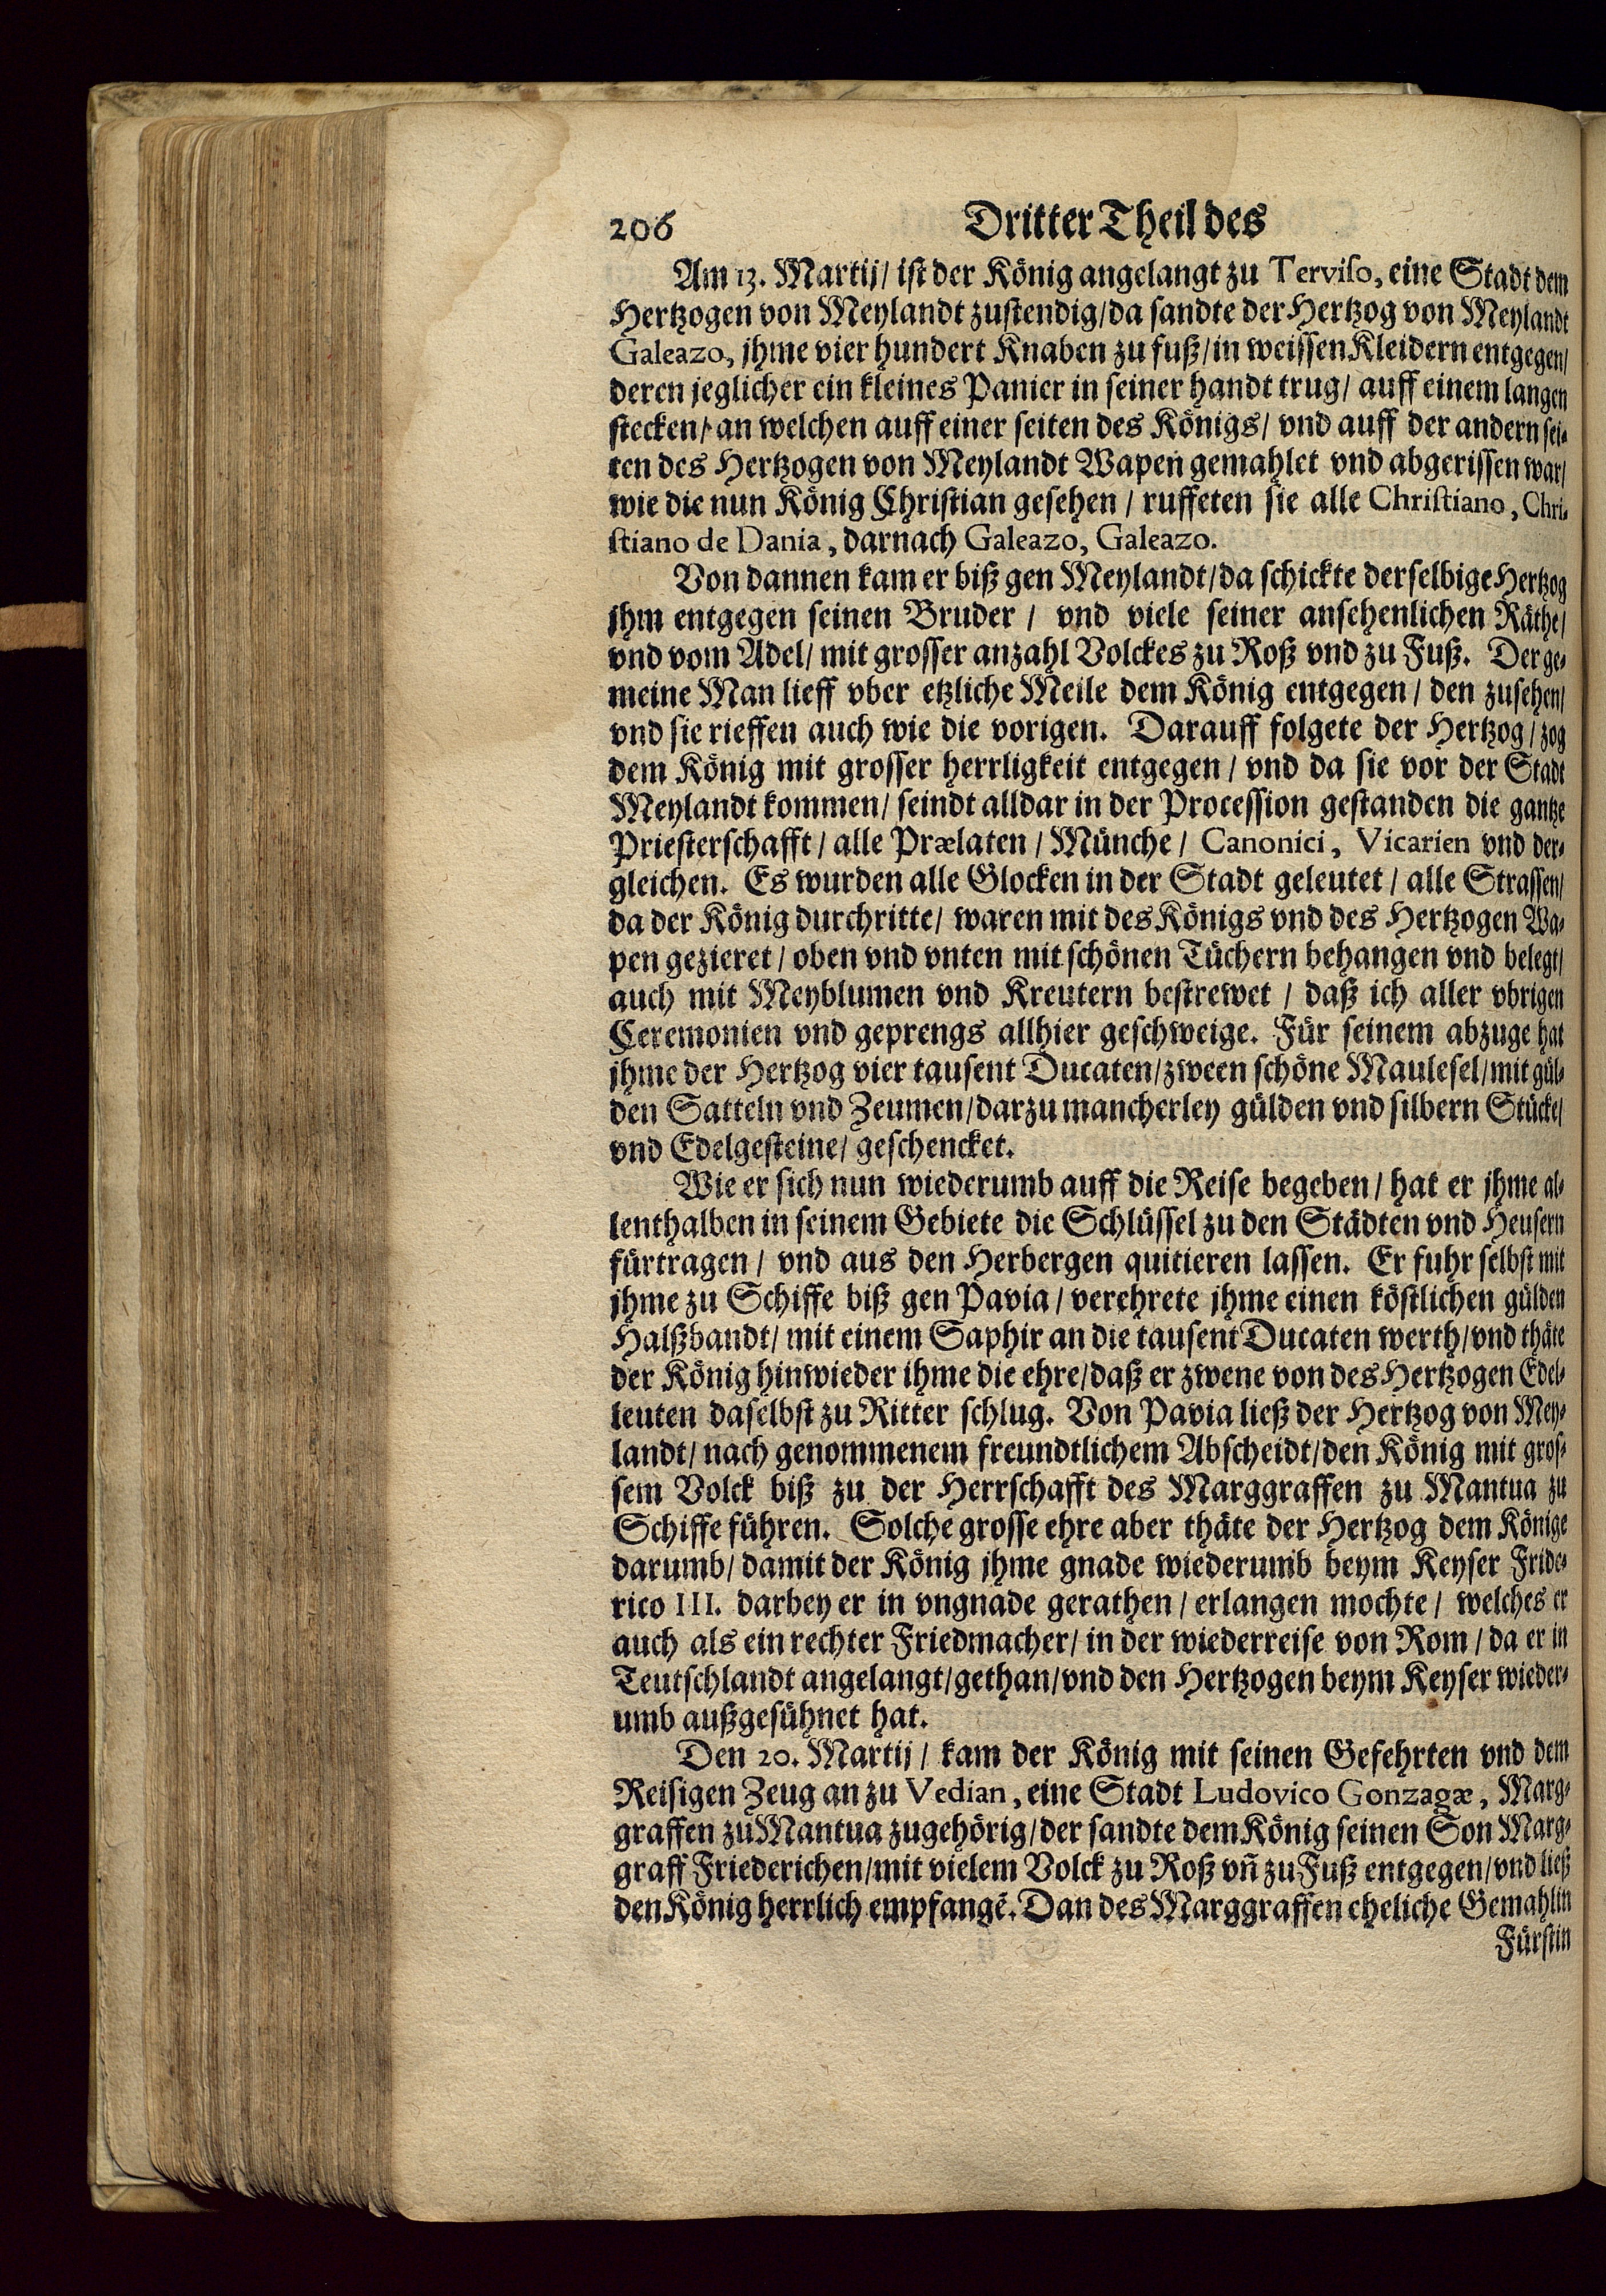 206 Dritter Theil des
Am 13. Martij/ ist der König angelangt zu Terviso, eine Stadt dem
Hertzogen von Meylandt zustendig/da sandte der Hertzog von Meylandt
Galeazo, jhme vier hundert Knaben zu fuß/in weissen Kleidern entgegen/
deren jeglicher ein kleines Panier in seiner handt trug/ auff einem langen
stecken/ an welchen auff einer seiten des Königs/ vnd auff der andern sei-
ten des Hertzogen von Meylandt Wapen gemahlet vnd abgerissen war/
wie die nun König Christian gesehen / ruffeten sie alle Christiano, Chri-
stiano de Dania, darnach Galeazo, Galeazo.
Von dannen kam er biß gen Meylandt/da schickte derselbige Hertzog
jhm entgegen seinen Bruder / vnd viele seiner ansehenlichen Räthe/
vnd vom Adel/ mit grosser anzahl Volckes zu Roß vnd zu Fuß. Der ge-
meine Man lieff vber etzliche Meile dem König entgegen / den zusehen/
vnd sie rieffen auch wie die vorigen. Darauff folgete der Hertzog / zog
dem König mit grosser herrligkeit entgegen / vnd da sie vor der Stadt
Meylandt kommen/ seindt alldar in der Procession gestanden die gantze
Priesterschafft / alle Prælaten / Münche / Canonici, Vicarien vnd der-
gleichen. Es wurden alle Glocken in der Stadt geleutet / alle Strassen/
da der König durchritte/ waren mit des Königs vnd des Hertzogen Wa-
pen gezieret / oben vnd vnten mit schönen Tüchern behangen vnd belegt/
auch mit Meyblumen vnd Kreutern bestrewet / daß ich aller vbrigen
Ceremonien vnd geprengs allhier geschweige. Für seinem abzuge hat
jhme der Hertzog vier tausent Ducaten/zween schöne Maulesel/mit gül-
den Satteln vnd Zeumen/darzu mancherley gülden vnd silbern Stücke/
vnd Edelgesteine/ geschencket.
Wie er sich nun wiederumb auff die Reise begeben / hat er jhme al-
lenthalben in seinem Gebiete die Schlüssel zu den Städten vnd Heusern
fürtragen / vnd aus den Herbergen quitieren lassen. Er fuhr selbst mit
jhme zu Schiffe biß gen Pavia / verehrete jhme einen köstlichen gülden
Halßbandt/ mit einem Saphir an die tausent Ducaten werth/vnd thäte
der König hinwieder ihme die ehre/daß er zwene von des Hertzogen Edel-
leuten daselbst zu Ritter schlug. Von Pavia ließ der Hertzog von Mey-
landt/ nach genommenem freundtlichem Abscheidt/den König mit gros-
sem Volck biß zu der Herrschafft des Marggraffen zu Mantua zu
Schiffe führen. Solche grosse ehre aber thäte der Hertzog dem Könige
darumb/ damit der König jhme gnade wiederumb beym Keyser Fride-
rico III. darbey er in vngnade gerathen / erlangen mochte / welches er
auch als ein rechter Friedmacher/ in der wiederreise von Rom / da er in
Teutschlandt angelangt/gethan/vnd den Hertzogen beym Keyser wieder-
umb außgesühnet hat.
Den 20. Martij / kam der König mit seinen Gefehrten vnd dem
Reisigen Zeug an zu Vedian, eine Stadt Ludovico Gonzagæ, Marg-
graffen zu Mantua zugehörig/der sandte dem König seinen Son Marg-
graff Friederichen/mit vielem Volck zu Roß vñ zu Fuß entgegen/vnd ließ
den König herrlich empfangē. Dan des Marggraffen eheliche Gemahlin
Fürstin